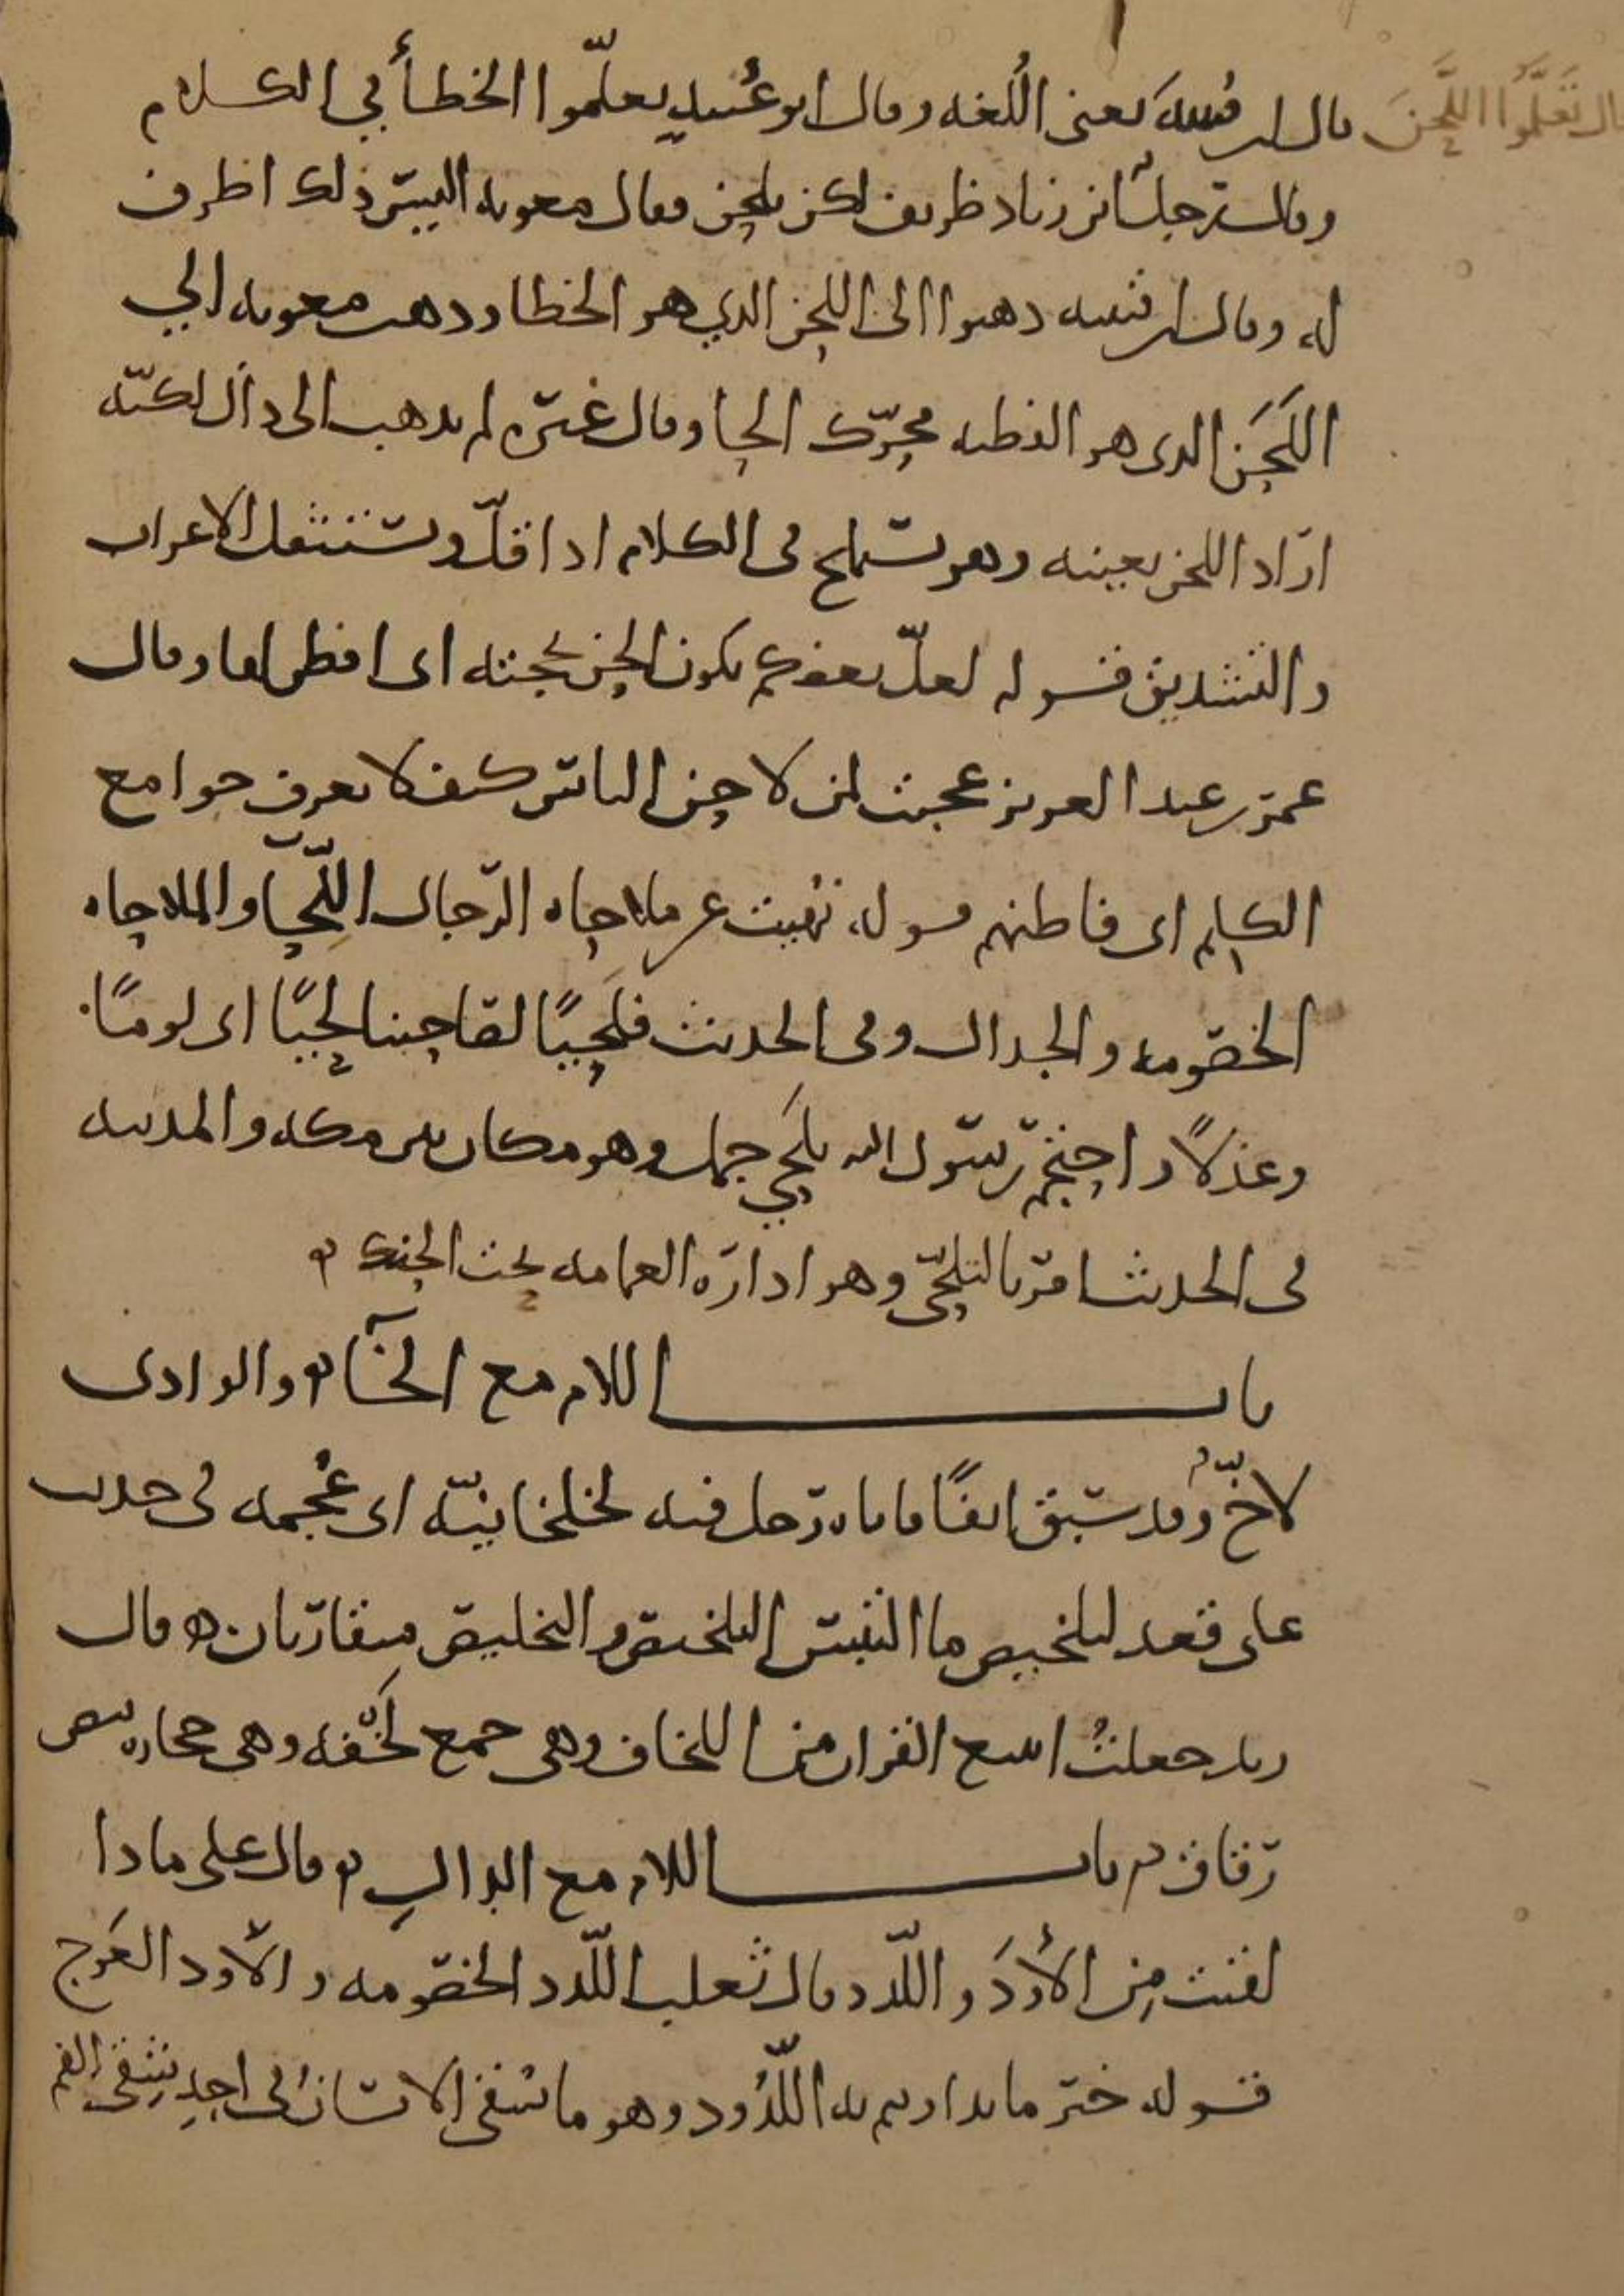 قال تَعَلَّمُوا اللَّحْنَ
قال ابن قتيبة يعنى اللُغه وقال ابو عُبيدٍ تعلّموا الخطأ في الكلام
وقال رجل ان زناد ظريف لكن يلحن فقال معويه اليس ذلك اظرف
له وقال ابن قتيبه ذهبوا الى اللحن الذي هو الخطا وذهب معويه الي
اللَحَن الذى هو الفطنه محرّك الحا وقال غيره لم يذهب الى ذا لكنّه
اراد اللحن بعينه وهو يستملح فى الكلام اذا قلّ ويستثقل الاعراب
والتشديق قوله لعلّ بعضكم يكون الحن بحجته اى افطن لها وقال
عمر بن عبد العزيز عجبت لمن لاحن الناس كيف لا يعرف جوامع
الكلم اى فاطنهم قوله نُهيت عن ملاحاه الرّجال اللِّحَا والملاحاه
الخصومه والجدال وفى الحديث فلَحيًا لصاحبنا لحيًا اى لومًا
وعذلًا واحتجم رسول الله بلَحي جمل وهو مكان بين مكه والمدينه
فى الحديث امر بالتلحّى وهو ادارة العمامه تحت الحنك ه
باب اللام مع الخآ ه والوادى
لاخّ وقد سبق انفًا فاتاه رجل فيه لخلخانيّه اى عُجمه فى حديث
على قعد لتلخيص ما التبس التلخيص والتخليص متقاربان ه قال
زيد جعلتُ اتتبع القران من اللخاف وهى جمع لَخْفه وهى حجاره بيض
رقاق ه باب اللام مع الدال ه قال على ماذا
لقيت مِن الأوَدَ واللّدد قال ثعلب اللّدد الخصومه والأود العَوج
قوله خير ما تداويتم به اللّدُود وهو ما سُقى الانسانُ فى احدِ شِقى الفم